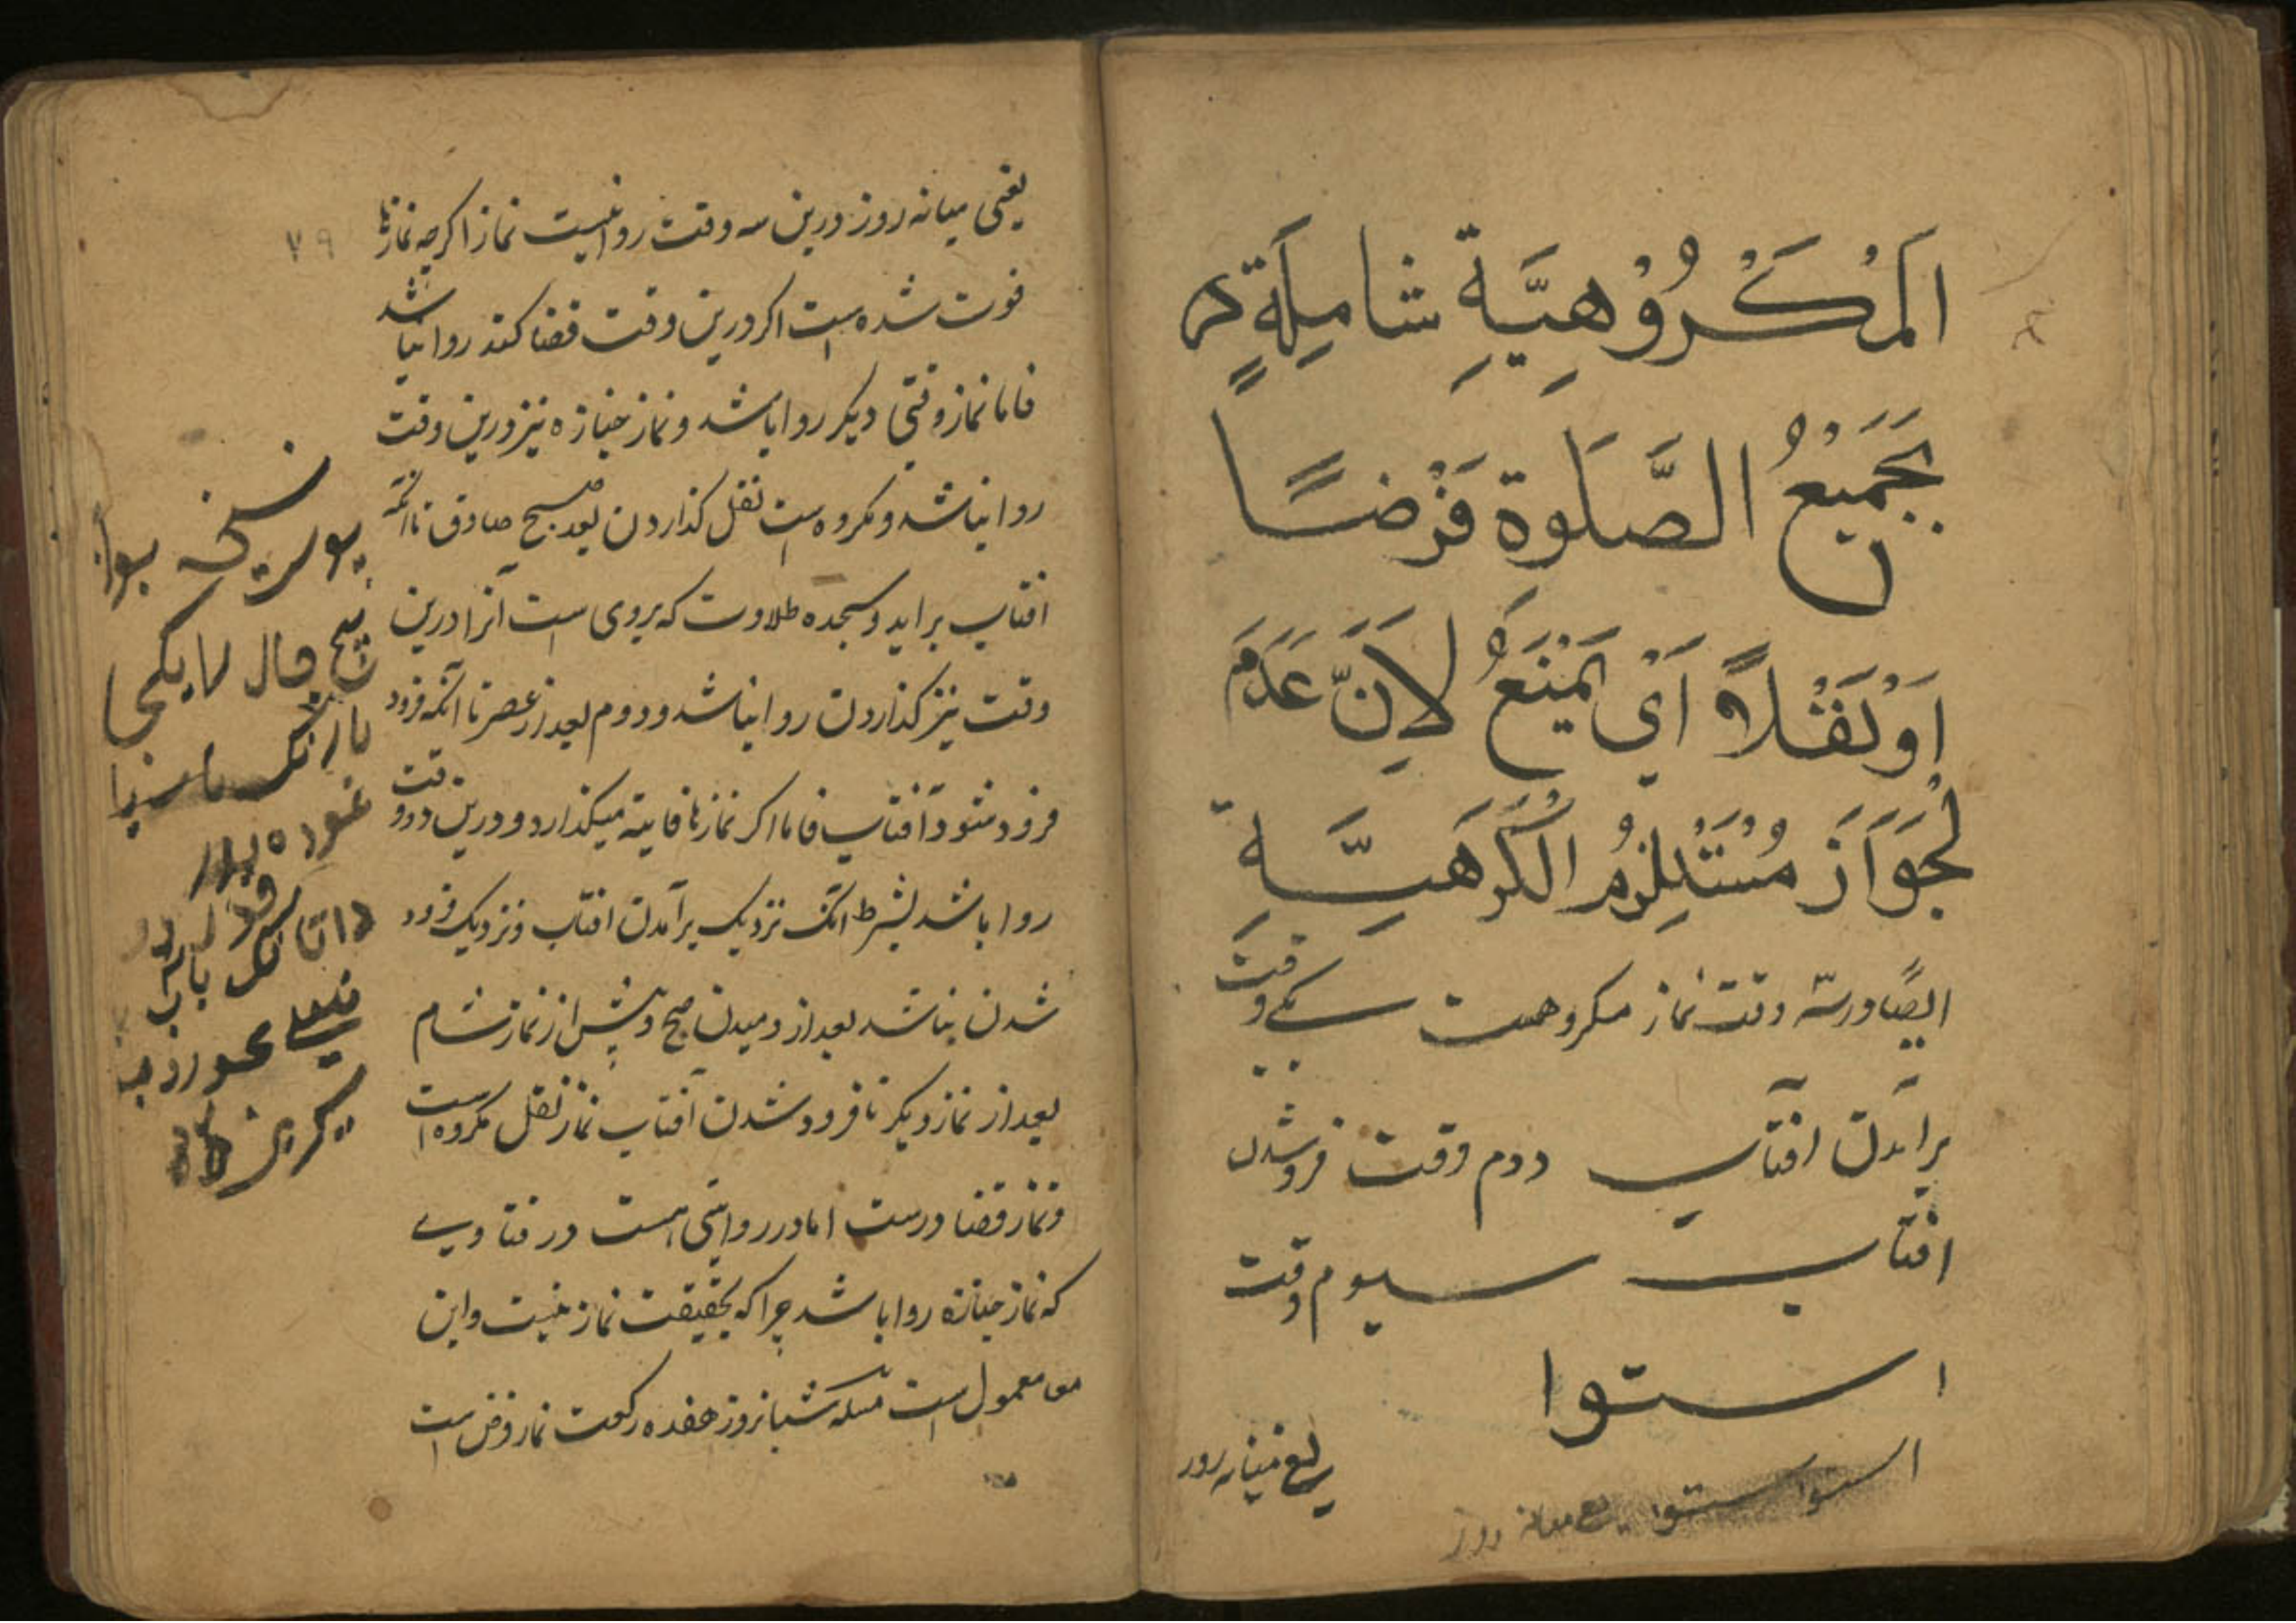 اَلْمَكْرُوْهِيَّةِ شَامِلَةٍ
بجَمِيْعُ الصَّلَوة فَرْضًا
اَوْ نَفْلاً اَيْ يَمْنَعُ لاَِنَّ عَدَمَ
لْجَوَازَ مُسْتَلْزِمُ الْكَرَهِيَّة
ايضًا و رسه وقت نماز مكروهست يكے وقت
برآمدن افتاب دوم وقت فروشدن
افتاب سيوم وقت
استوا
يعنے ميانه روز
استوا استوا يعنے ميانه روز
يعنى ميانه روز درين سه وقت روانيست نماز اكرچه نمازها
فوت شده است اكر درين وقت قضا كند روا نباشد
فاما نماز وقتى ديكر روا باشد و نماز جنازه نيز درين وقت
روا نباشد و مكروه است نفل كذاردن بعد صبح صادق تا انكه
افتاب برايد و سجده طلاوت كه بروى است آنرا درين
وقت نيز كذاردن روا نباشد و دوم بعد از عصر تا آنكه فرود
فرود شود آفتاب فاما اكر نمازها فايته ميكذارد و درين دو وقت
روا باشد بشرط انكه نزديك برآمدن افتاب و نزديك فرود
شدن نباشد بعد از دميدن صبح و پيش از نماز شام
بعد از نماز ديكر تا فرود شدن آفتاب نماز نفل مكروه است
و نماز قضا درست اما در روايتى است در فتاوى
كه نماز جنازه روا باشد چرا كه بحقيقت نماز نيست و اين
معمول است مسله شبانروز هفده ركعت نماز فرض است
٧٩
بو نسخه